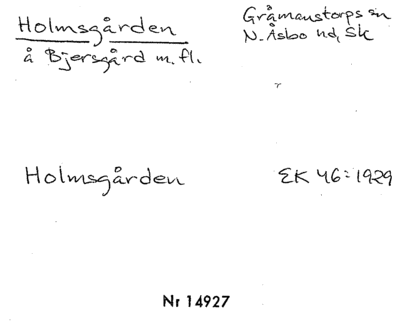 Holmsgården
å Bjersgård m.fl.
Gråmanstorps sn
N. Åsbo hd, Sk
Holmsgården
EK 46:1929
Nr 14927